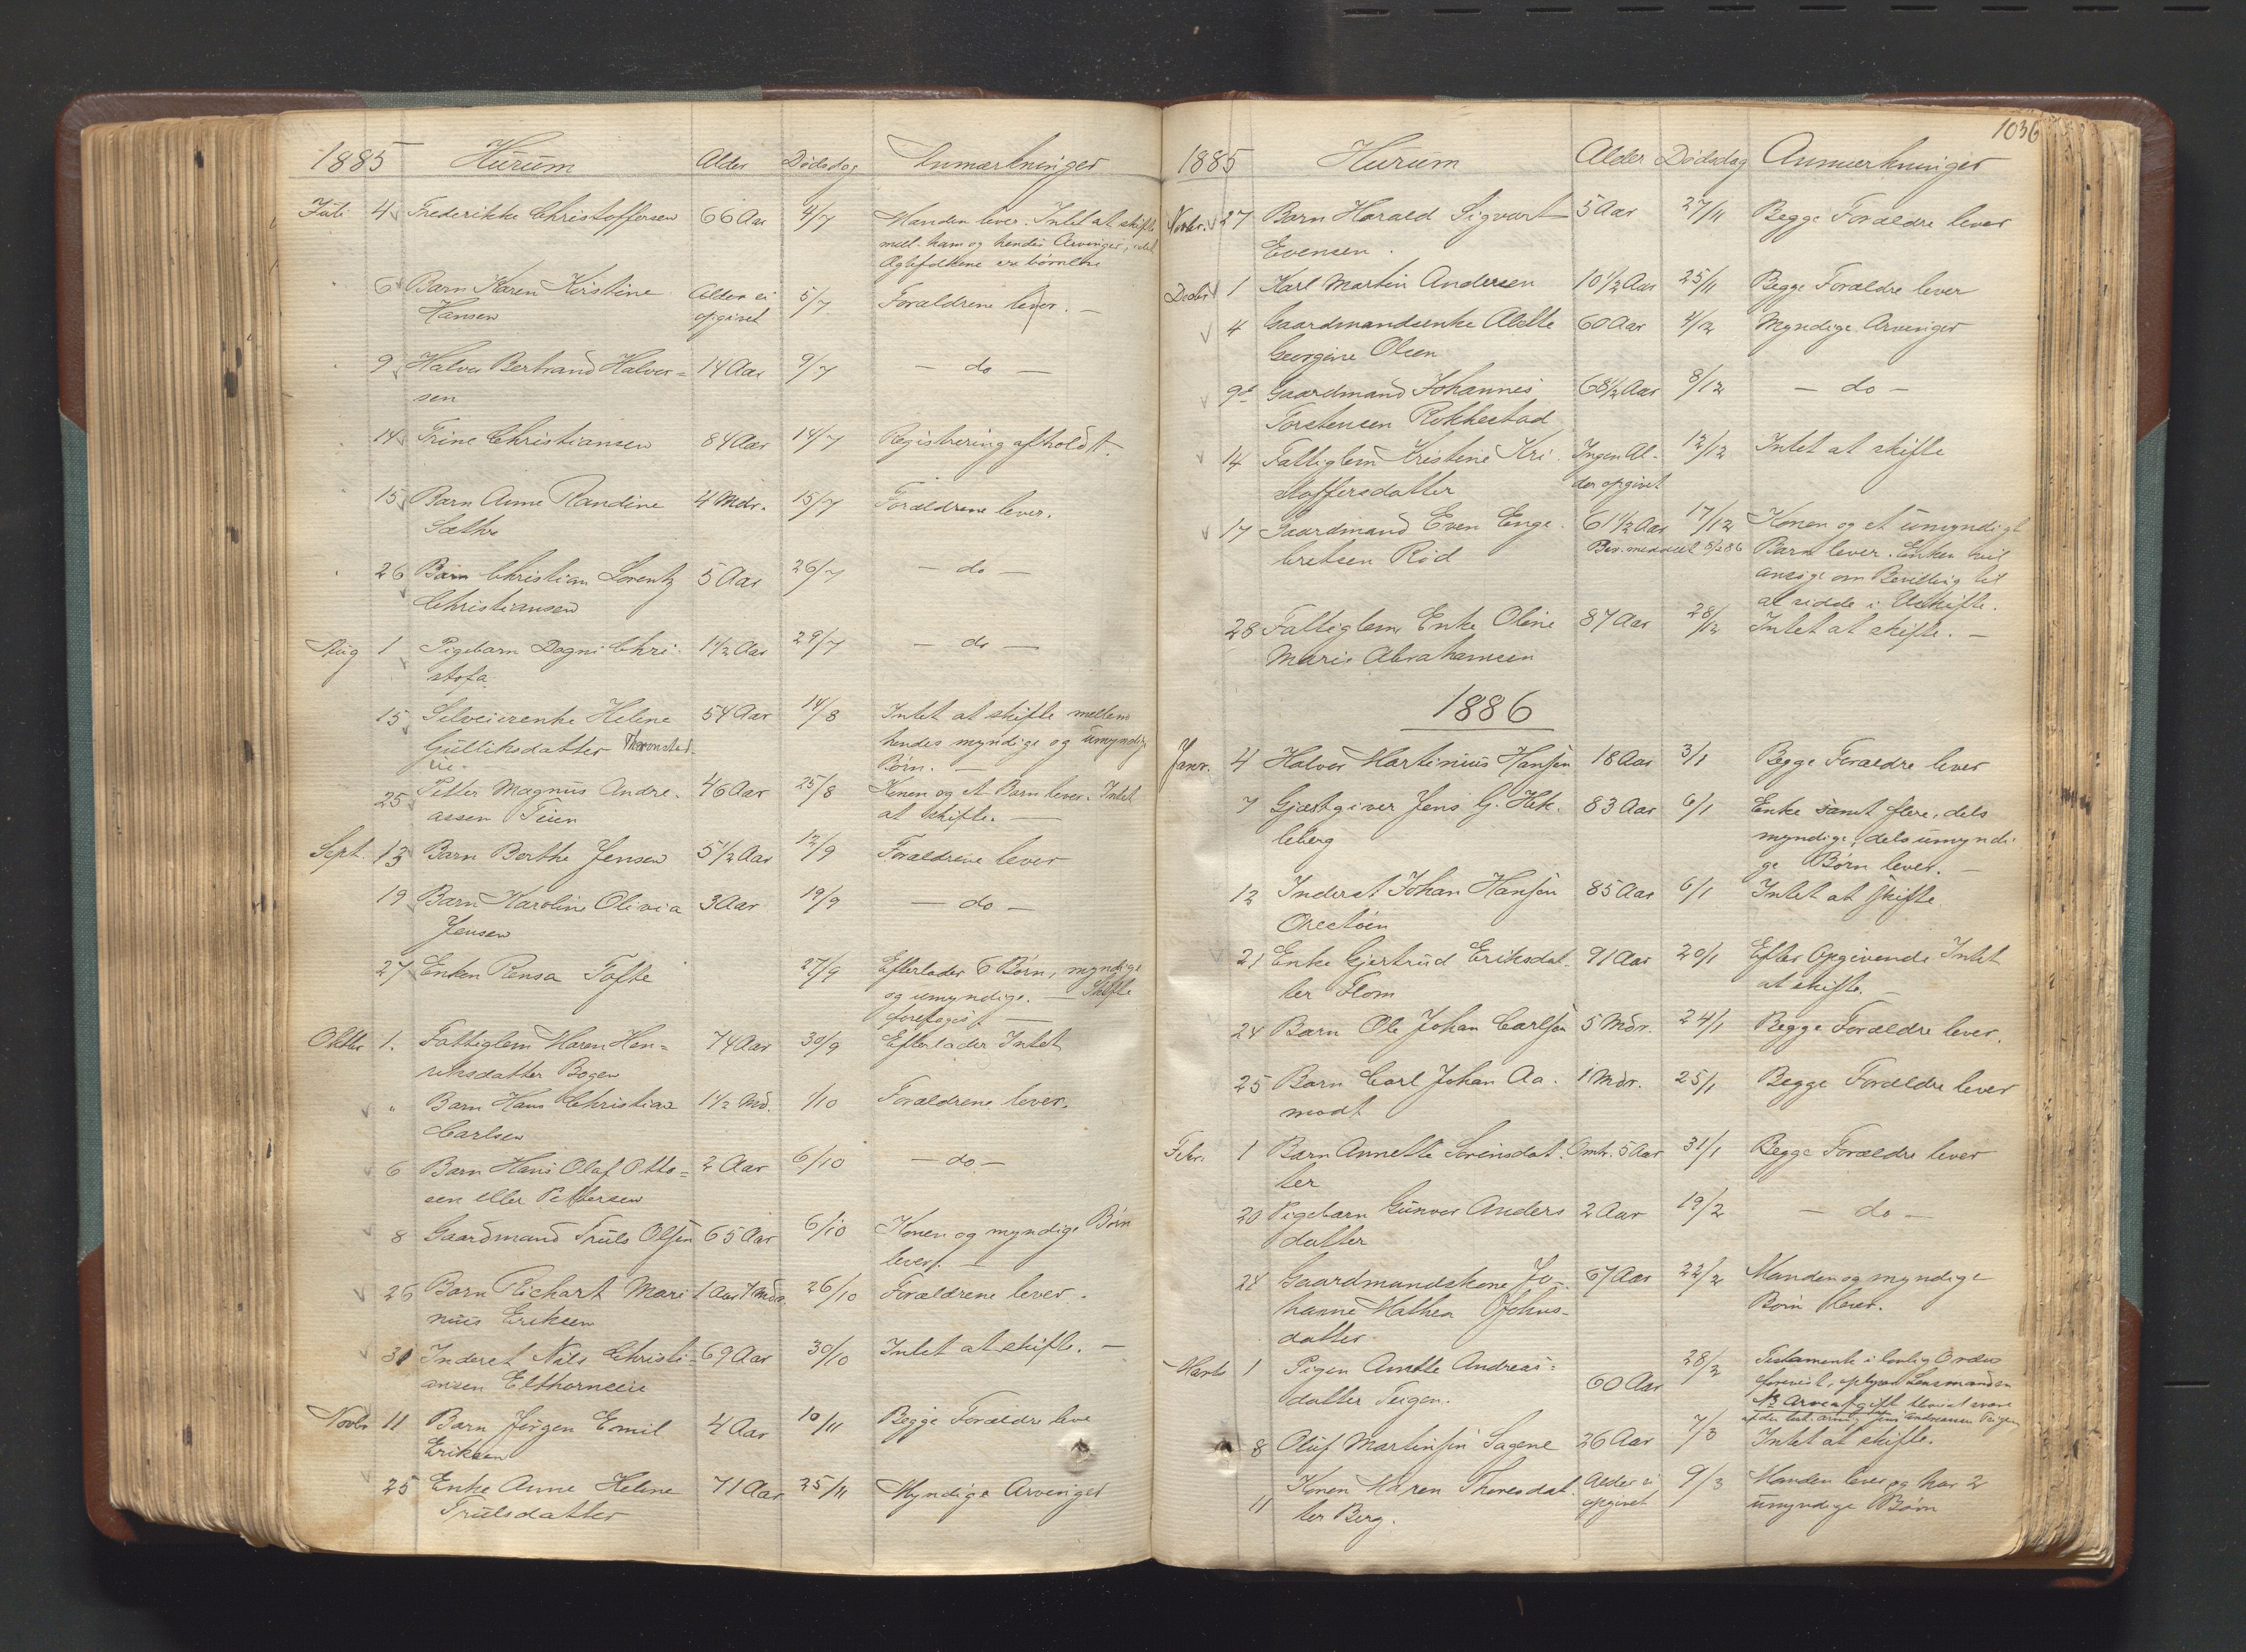 1885 Hurum Alder Dødsdag Anmærkninger
Juli 4 Frederikke Christoffersen 66 Aar 4/7 Manden lever. Intet at skifte
mell. ham og hendes Arvinger, idet
Ægtefolkene ere barnløse
6 Barn Karen Kirstine Alder ei 5/7 Forældrene lever. —
Hansen opgivet
9 Halvor Bertrand Halvor= 14 Aar 9/7 — do —
sen
14 Trine Christiansen 84 Aar 14/7 Registrering afholdt.
15 Barn Anne Randine 4 Mdr. 15/7 Forældrene lever.
Sæthre
26 Barn Christian Lorentz 5 Aar 26/7 — do —
Christiansen
Aug 1 Pigebarn Dagni Chri- 1 1/2 Aar 29/7 — do —
stofa
15 Selveierenke Helene 54 Aar 14/8 Intet at skifte mellem
Gulliksdatter hendes myndige og umyndige
Børn. —
25 Petter Magnus Andre- 46 Aar 25/8 Konen og et Barn lever. Intet
assen Tuen at skifte. —
Sept. 13 Barn Berthe Jensen 5 1/2 Aar 12/9 Forældrene lever
19 Barn Karoline Olivia 3 Aar 19/9 — do —
Jensen
27 Enken Rensa Tofte 27/9 Efterlader 6 Børn, myndige
og umyndige. — Skifte
foretages —
Oktbr 1. Fattiglem Maren Hen= 74 Aar 30/9 Efterlader Intet
riksdatter Bogen
" Barn Hans Christian 1 1/2 Md. 1/10 Forældrene lever.
Carlsen
6 Barn Hans Olaf Otto= 2 Aar 6/10 — do —
sen eller Pettersen
8 Gaardmand Truls Olsen 65 Aar 6/10 Konen og myndige Børn
lever. —
26 Barn Richart Mari- 1 Aar 7 Mdr. 26/10 Forældrene lever.
nius Eriksen
31 Inderst Nils Christi- 69 Aar 30/10 Intet at skifte. —
ansen
Novbr 11 Barn Jørgen Emil 4 Aar 10/11 Begge Forældre leve
Eriksen
25 Enke Anne Helene 71 Aar 25/11 Myndige Arvinger
Trulsdatter
1036
1885 Hurum Alder Dødsdag Anmærkninger
Novbr. 27 Barn Harald Sigvart 5 Aar 27/11 Begge Forældre lever
Evensen.
Decbr 1 Karl Martin Andersen 10 1/2 Aar 25/11 Begge Forældre lever
4 Gaardmandsenke Alette 60 Aar 4/12 Myndige Arvinger
Georgine Olsen
9d Gaardmand Johannes 68 1/2 Aar 8/12 — do —
Torstensen Rokkestad
14 Fattiglem Kristine Kri- Ingen Al- 12/12 Intet at skifte
stoffersdatter der opgivet
17 Gaardmand Even Enge- 61 1/2 Aar 17/12 Konen og et umyndigt
bretsen Rød Bev. meddelt 8/2 86 Barn lever. Enken vil
ansøge om Bevilling til
at sidde i Uskifte.
28 Fattiglem Enke Oline 87 Aar 28/12 Intet at skifte. —
Marie Abrahamsen
1886
Janr. 4 Halvor Martinius Hansen 18 Aar 3/1 Begge Forældre lever
7 Gjæstgiver Jens G. Hek- 83 Aar 6/1 Enke samt flere, dels
leberg myndige, dels umyndi-
ge Børn lever. —
12 Inderst Johan Hansen 85 Aar 6/1 Intet at skifte
21 Enke Gjertrud Eriksdat- 91 Aar 20/1 Efter Opgivende Intet
ter Flom at skifte. —
24 Barn Ole Johan Carlsen 5 Mdr. 24/1 Begge Forældre lever.
25 Barn Carl Johan Aa- 1 Mdr. 25/1 Begge Forældre lever
modt
Febr. 1 Barn Annette Sorensdat- Omtr. 5 Aar 31/1 Begge Forældre lever
ter
20 Pigebarn Gunvor Anders 2 Aar 19/2 — do —
datter
24 Gaardmandskone Jo- 67 Aar 22/2 Manden og myndige
hanne Mathea Johns- Børn lever.
datter.
Marts 1 Pigen Anette Andreas= 60 Aar 28/2 Testamente i lovlig Orden
datter Teigen. forevist, oplyser Lensmanden
NB Arveafgift
af den test. arving Jens Andreassen Teigen
8 Oluf Martinsen Sagene 26 Aar 7/3 Intet at skifte.
11 Konen Maren Thoresdat- Alder ei 9/3 Manden lever og har 2
ter Berg. opgivet umyndige Børn